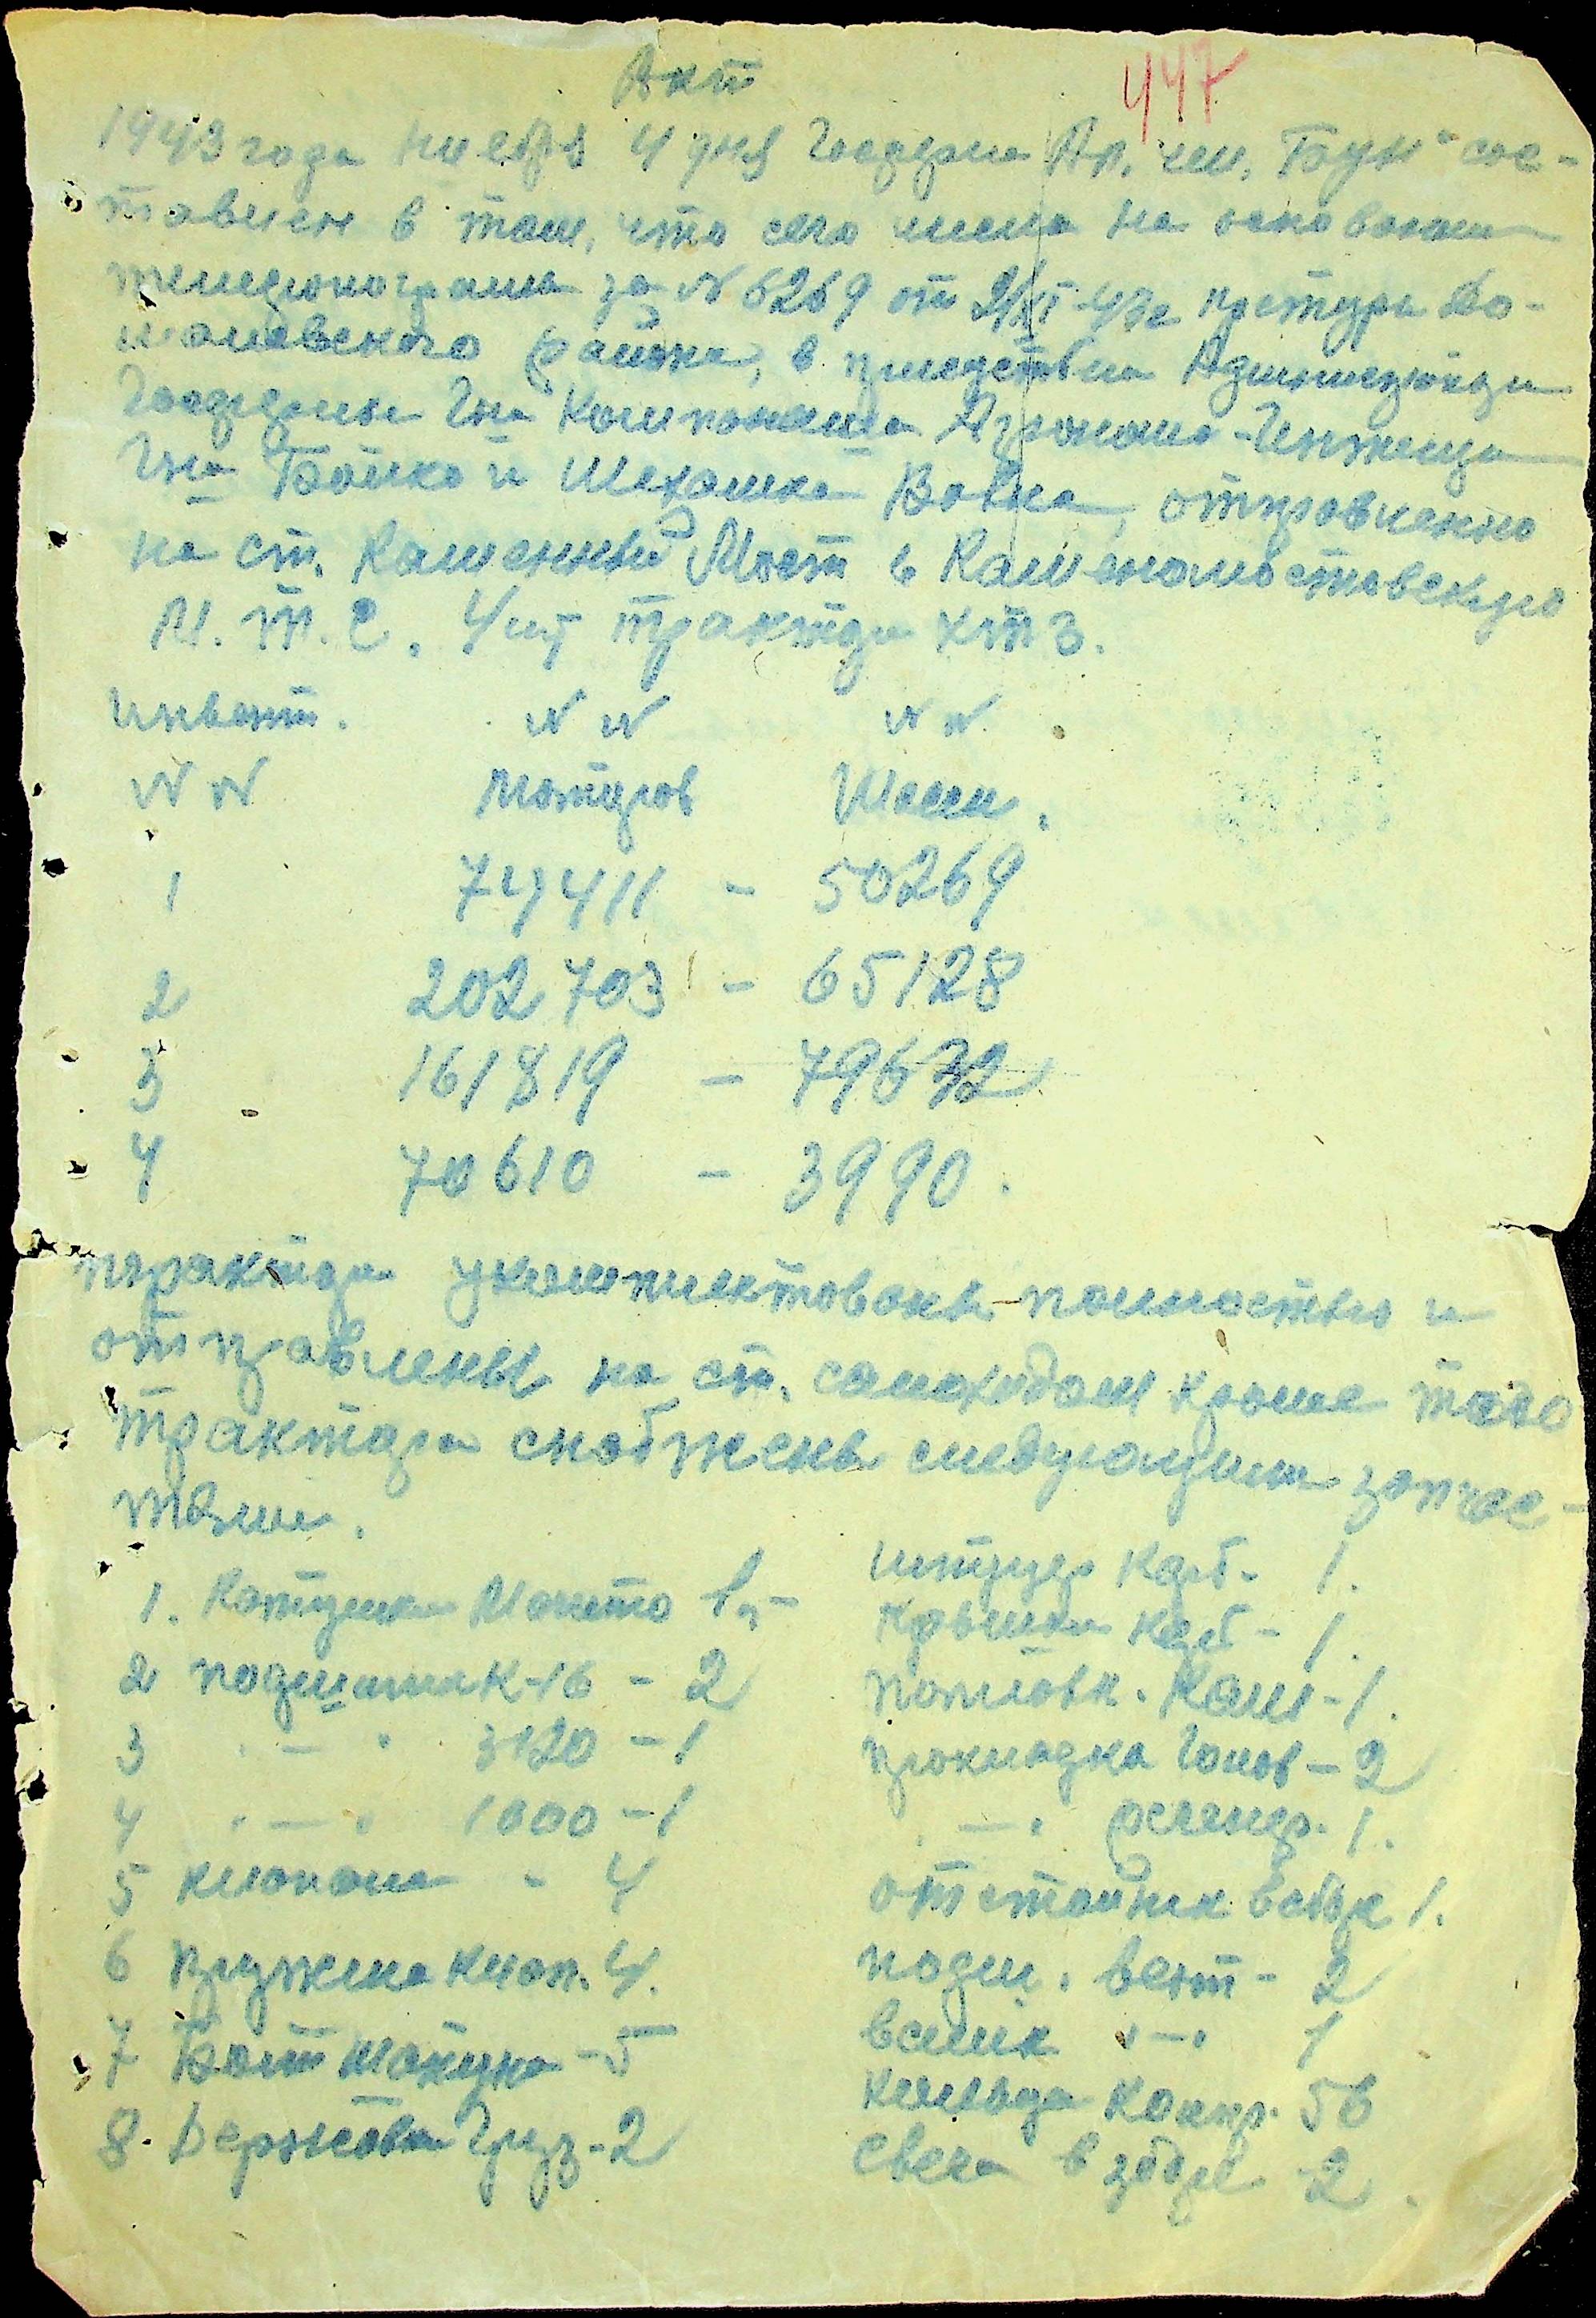 Акт
447
1943 года ноября 4 дня Госферма Ар. им. "Бук" сос-
тавлен в том, что сего числа на основании
телефонограммы за N 6269 от 2/XI-43г претуры До-
маневского района, в присутствии Администратора
Госфермы Г-на Компонаша Агронома-Инженера
Г-на Бойко и Механика Вовка, отправлено
на ст. Каменный Мост в Каменомостовскую
М.Т.С. 4 шт трактора ХТЗ.
Инвент. N N N N.
N N Моторов Шасси.
1 74411 - 50269
2 202703 - 65128
3 161819 - 79632
4 70610 - 3990.
трактора укомплектованы полностью и
отправлены на ст. самоходом кроме того
трактора снабжены следующими запчас-
тями.
1. Катушка Магнето 1,-
2 подшипник-16 - 2
3 " — " 3120 - 1
4 " — " 1000 - 1
5 клапана - 4
6 пружина клап. 4.
7 Болт Шатуна - 5
8. Державка Груз - 2
штуцер карб - 1.
Крышка карб - 1.
поплавк. Кам - 1.
прокладка Голов - 2
" — " 1.
отстойник воздух 1.
подш. вент - 2
валик " — " 1
кольца Компр. 56
Свеча в сборе - 2.